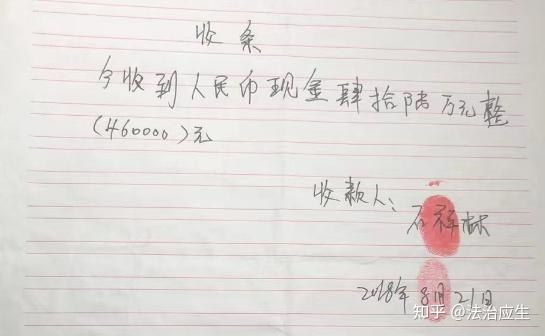 收条
今收到人民币现金肆拾陆万元整
(460000)元
收款人:石祥林
2018年8月21日
知乎 @法治应生